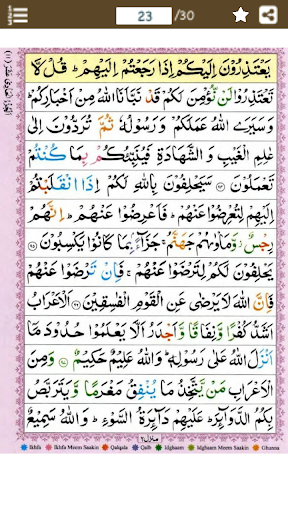 23
/30
يَعۡتَذِرُوۡنَ اِلَيۡكُمۡ اِذَا رَجَعۡتُمۡ اِلَيۡهِمۡ‌ ؕ قُلْ لَّا
تَعۡتَذِرُوۡا لَنۡ نُّؤۡمِنَ لَـكُمۡ قَدۡ نَـبَّاَنَا اللّٰهُ مِنۡ اَخۡبَارِكُمۡ‌ ؕ
وَ سَيَرَى اللّٰهُ عَمَلَـكُمۡ وَرَسُوۡلُهٗ ثُمَّ تُرَدُّوۡنَ اِلٰى
عٰلِمِ الۡغَيۡبِ وَ الشَّهَادَةِ فَيُنَبِّئُكُمۡ بِمَا كُنۡتُمۡ
تَعۡمَلُوۡنَ ۞ سَيَحۡلِفُوۡنَ بِاللّٰهِ لَـكُمۡ اِذَا انْقَلَبۡتُمۡ
اِلَيۡهِمۡ لِتُعۡرِضُوۡا عَنۡهُمۡ‌ؕ فَاَعۡرِضُوۡا عَنۡهُمۡ‌ؕ اِنَّهُمۡ
رِجۡسٌ‌ وَّمَاۡوٰٮهُمۡ جَهَـنَّمُ‌ۚ جَزَآءًۢ بِمَا كَانُوۡا يَكۡسِبُوۡنَ ۞
يَحۡلِفُوۡنَ لَـكُمۡ لِتَرۡضَوۡا عَنۡهُمۡ‌ۚ فَاِنۡ تَرۡضَوۡا عَنۡهُمۡ
فَاِنَّ اللّٰهَ لَا يَرۡضٰى عَنِ الۡقَوۡمِ الۡفٰسِقِيۡنَ ۞ اَلۡاَعۡرَابُ
اَشَدُّ كُفۡرًا وَّ نِفَاقًا وَّاَجۡدَرُ اَلَّا يَعۡلَمُوۡا حُدُوۡدَ مَاۤ
اَنۡزَلَ اللّٰهُ عَلٰى رَسُوۡلِهٖ‌ؕ وَاللّٰهُ عَلِيۡمٌ حَكِيۡمٌ ۞ وَمِنَ
الۡاَعۡرَابِ مَنۡ يَّتَّخِذُ مَا يُنۡفِقُ مَغۡرَمًا وَّيَتَرَبَّصُ
بِكُمُ الدَّوَآئِرَ‌ؕ عَلَيۡهِمۡ دَآئِرَةُ السَّوۡءِ‌ؕ وَاللّٰهُ سَمِيۡعٌ
منزل ٢
Ikhfa Ikhfa Meem Saakin Qalqala Qalb Idghaam Idghaam Meem Saakin Ghunna